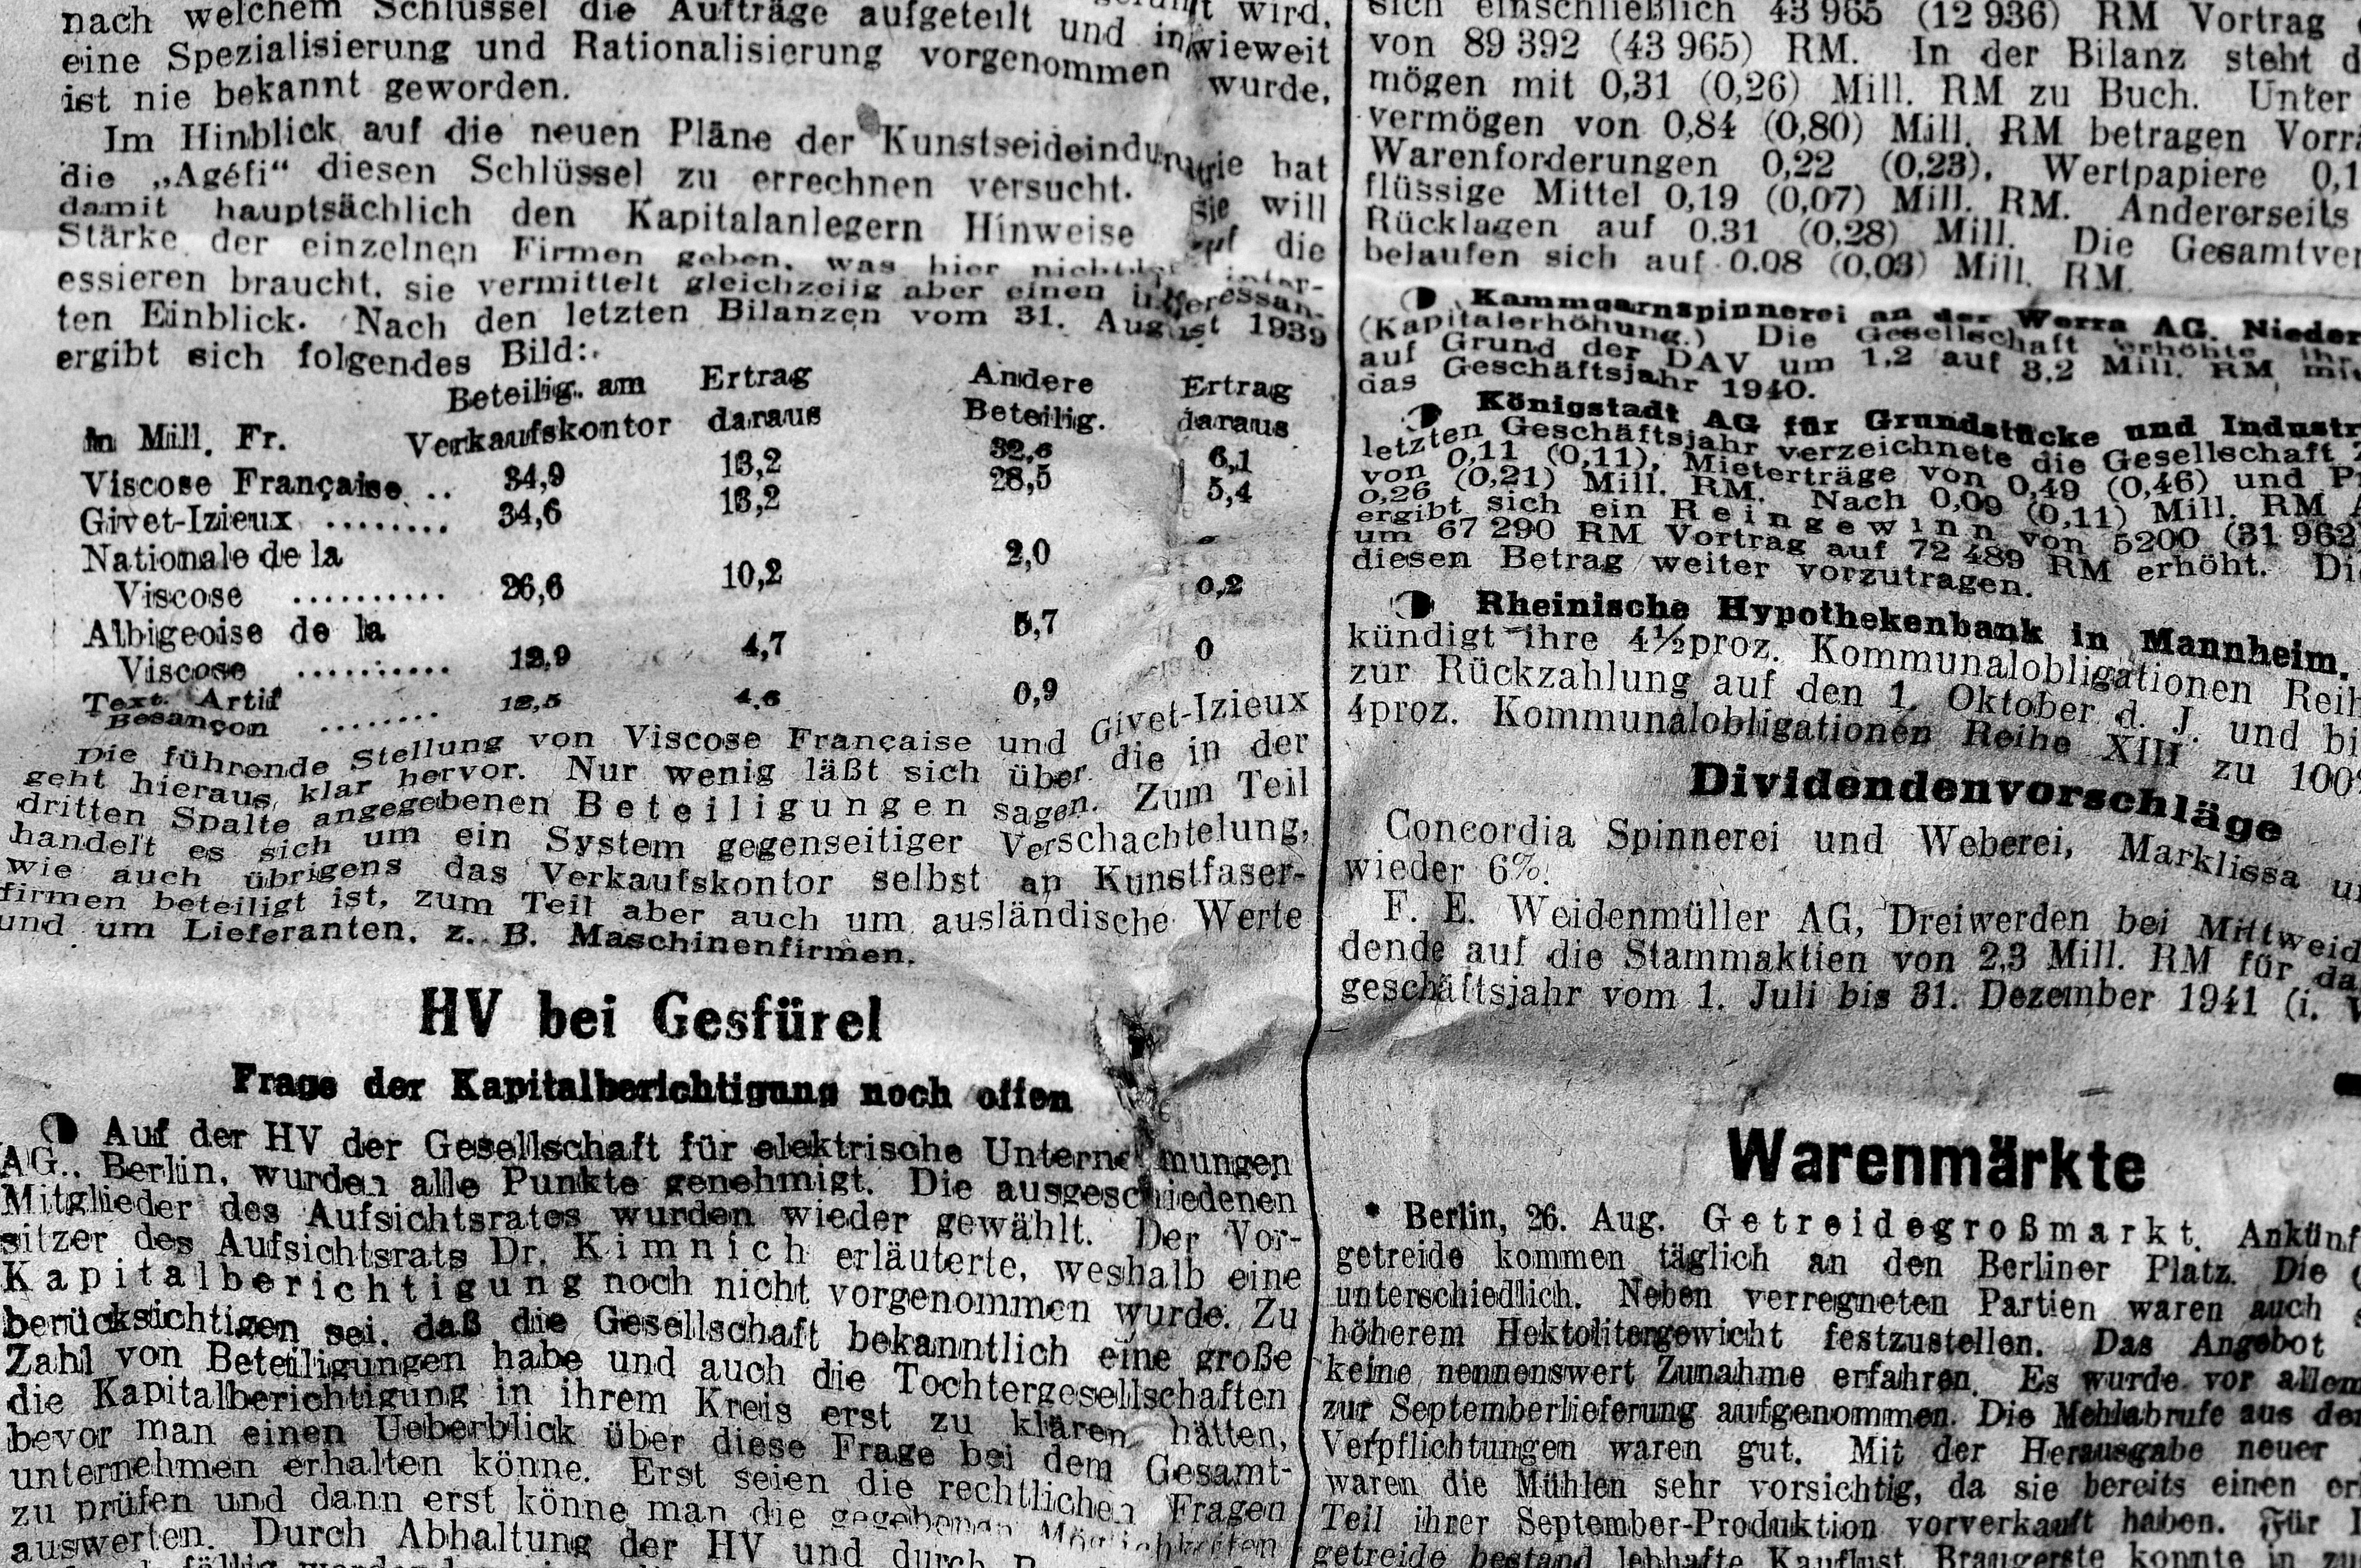 nach welchem Schlüssel die Aufträge aufgeteilt und inwieweit
eine Spezialisierung und Rationalisierung vorgenommen wurde,
ist nie bekannt geworden.
Im Hinblick auf die neuen Pläne der Kunstseideindustrie hat
die „Agéfi“ diesen Schlüssel zu errechnen versucht. Sie will
damit hauptsächlich den Kapitalanlegern Hinweise auf die
Stärke der einzelnen Firmen geben, was hier nicht inter-
essieren braucht, sie vermittelt gleichzeiig aber einen interessan-
ten Einblick. Nach den letzten Bilanzen vom 31. August 1939
ergibt sich folgendes Bild:
Beteilig. am Ertrag Andere Ertrag
in Mill. Fr. Verkaufskontor daraus Beteilig. daraus
Viscose Française .. 34,9 13,2 32,6 6,1
Givet-Izieux ........ 34,6 13,2 28,5 5,4
Nationale de la
Viscose .......... 26,6 10,2 2,0 -
Albigeoise de la
Viscose .......... 12,9 4,7 5,7 0,2
Text. Artif
Besançon ........ 12,5 4,6 0,9 0
Die führende Stellung von Viscose Française und Givet-Izieux
geht hieraus klar hervor. Nur wenig läßt sich über die in der
dritten Spalte angegebenen Beteiligungen sagen. Zum Teil
handelt es sich um ein System gegenseitiger Verschachtelung,
wie auch übrigens das Verkaufskontor selbst an Kunstfaser-
firmen beteiligt ist, zum Teil aber auch um ausländische Werte
und um Lieferanten, z. B. Maschinenfirmen.
HV bei Gesfürel
Frage der Kapitalberichtigung noch offen
Auf der HV der Gesellschaft für elektrische Unternehmungen
AG., Berlin, wurden alle Punkte genehmigt. Die ausgeschiedenen
Mitglieder des Aufsichtsrates wurden wieder gewählt. Der Vor-
sitzer des Aufsichtsrats Dr. Kimnich erläuterte, weshalb eine
Kapitalberichtigung noch nicht vorgenommen wurde. Zu
berücksichtigen sei, daß die Gesellschaft bekanntlich eine große
Zahl von Beteiligungen habe und auch die Tochtergesellschaften
die Kapitalberichtigung in ihrem Kreis erst zu klären hätten,
bevor man einen Ueberblick über diese Frage bei dem Gesamt-
unternehmen erhalten könne. Erst seien die rechtlichen Fragen
zu prüfen und dann erst könne man die gegebenen Möglichkeiten
auswerten. Durch Abhaltung der HV und durch
sich einschließlich 43 965 (12 936) RM Vortrag
von 89 392 (43 965) RM. In der Bilanz steht
mögen mit 0,31 (0,26) Mill. RM zu Buch. Unter
vermögen von 0,84 (0,80) Mill. RM betragen Vorr
Warenforderungen 0,22 (0,23), Wertpapiere 0,1
flüssige Mittel 0,19 (0,07) Mill. RM. Andererseits
Rücklagen auf 0.31 (0,28) Mill. Die Gesamtver
belaufen sich auf 0.08 (0,03) Mill. RM.
Kammgarnspinnerei an der Werra AG. Nieder
(Kapitalerhöhung.) Die Gesellschaft erhöhte ihr
auf Grund der DAV um 1,2 auf 3,2 Mill. RM mit
das Geschäftsjahr 1940.
Königstadt AG für Grundstücke und Industr
letzten Geschäftsjahr verzeichnete die Gesellschaft
von 0,11 (0,11), Mieterträge von 0,49 (0,46) und P
0,26 (0,21) Mill. RM. Nach 0,09 (0,11) Mill. RM A
ergibt sich ein Reingewinn von 5200 (31 962)
um 67 290 RM Vortrag auf 72 489 RM erhöht. Di
diesen Betrag weiter vorzutragen.
Rheinische Hypothekenbank in Mannheim.
kündigt ihre 4½proz. Kommunalobligationen Reih
zur Rückzahlung auf den 1. Oktober d. J. und bi
4proz. Kommunalobligationen Reihe XIII zu 100
Dividendenvorschläge
Concordia Spinnerei und Weberei, Marklissa u
wieder 6%.
F. E. Weidenmüller AG, Dreiwerden bei Mittweid
dende auf die Stammaktien von 2,3 Mill. RM für da
geschäftsjahr vom 1. Juli bis 31. Dezember 1941 (i. V
Warenmärkte
* Berlin, 26. Aug. Getreidegroßmarkt. Ankünf
getreide kommen täglich an den Berliner Platz. Die
unterschiedlich. Neben verregneten Partien waren auch
höherem Hektolitergewicht festzustellen. Das Angebot
keine nennenswert Zunahme erfahren. Es wurde vor allem
zur Septemberlieferung aufgenommen. Die Mehlabrufe aus de
Verpflichtungen waren gut. Mit der Herausgabe neuer
waren die Mühlen sehr vorsichtig, da sie bereits einen er
Teil ihrer September-Produktion vorverkauft haben. Für
getreide bestand lebhafte Kauflust. Braugerste konnte in zu